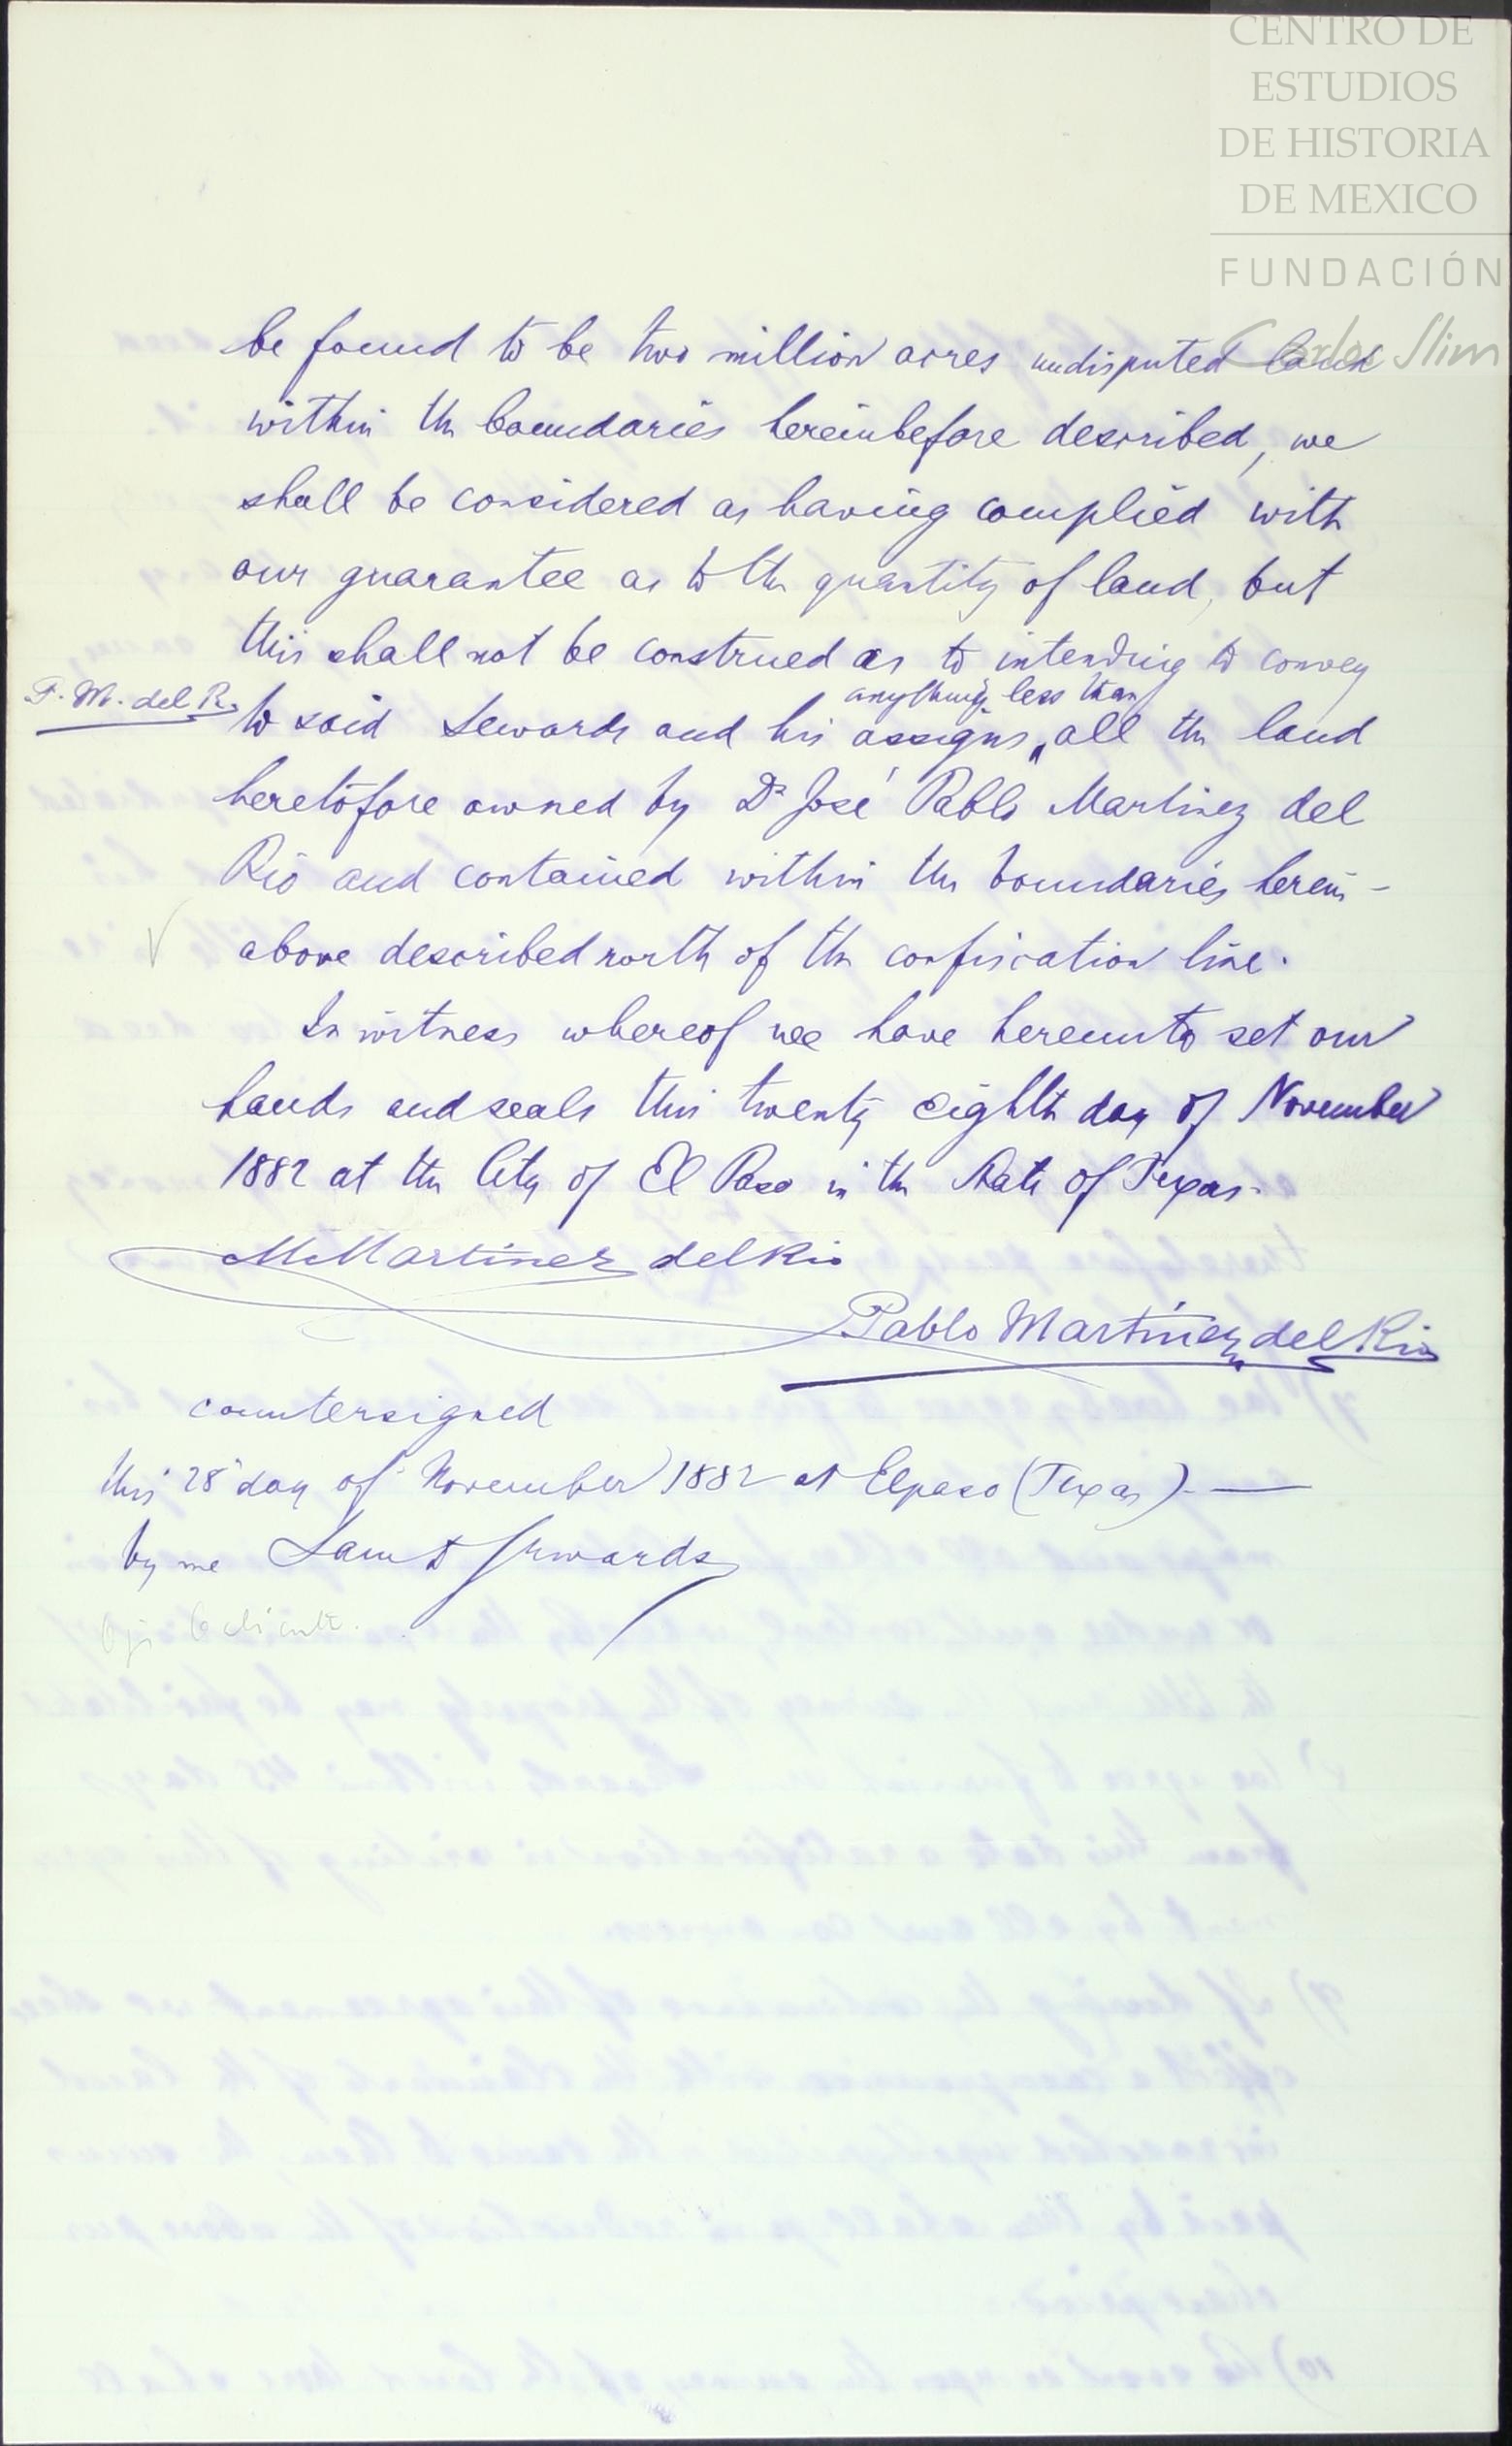 CENTRO DE
ESTUDIOS
DE HISTORIA
DE MEXICO
FUNDACIÓN
Carlos Slim
be found to be two million acres undisputed land
within the boundaries hereinbefore described, we
shall be considered as having complied with
our guarantee as to the quantity of land, but
this shall not be construed as to intending to convey
anything less than
P. M. del R. to said Sewards and his assigns, all the land
heretofore owned by Dr José Pablo Martinez del
Rio and contained within the boundaries herein-
above described north of the confiscation line.
In witness whereof we have hereunto set our
hands and seals this twenty eighth day of November
1882 at the City of El Paso in the State of Texas.
M Martinez del Rio
Pablo Martinez del Rio
countersigned
this 28 day of November 1882 at Elpaso (Texas).
by me Sewards